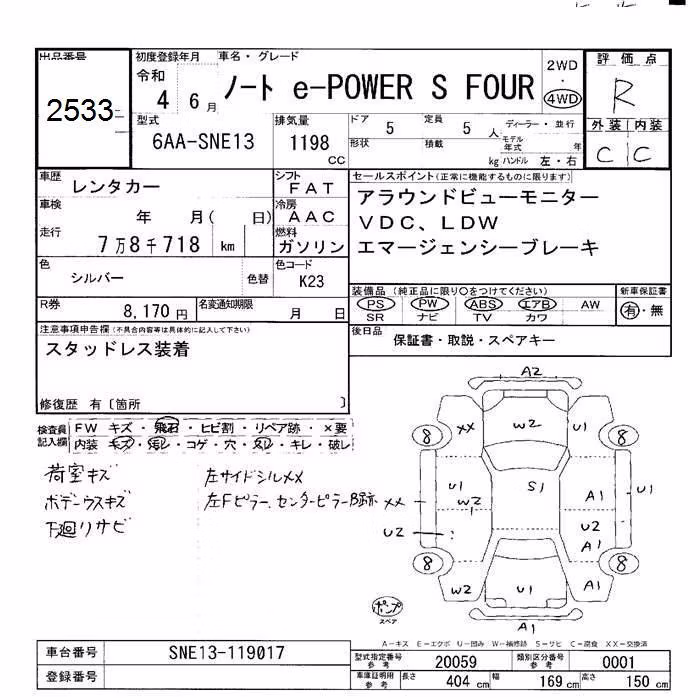 出品番号
2533
初度登録年月
令和
4 6月
車名・グレード
ノート e-POWER S FOUR
2WD
・
4WD
評価点
R
外装 内装
C C
型式
6AA-SNE13
排気量
1198
CC
ドア 5
定員 5人
形状
積載 kg
ディーラー・並行
モデル年式 年
ハンドル 左・右
車歴
レンタカー
シフト
FAT
車検
年 月( 日)
冷房
AAC
走行
7万8千718 km
燃料
ガソリン
色
シルバー
色替
色コード
K23
R券
8,170円
名変通知期限
月 日
セールスポイント(正常に機能するものに限ります)
アラウンドビューモニター
VDC、LDW
エマージェンシーブレーキ
装備品 (純正品に限り○をつけてください)
PS PW ABS エアB AW
SR ナビ TV カワ
新車保証書
有・無
後日品
保証書・取説・スペアキー
注意事項申告欄(不具合内容等は具体的に記入して下さい)
スタッドレス装着
修復歴 有〔箇所 〕
検査員記入欄
FW キズ・飛石・ヒビ割・リペア跡・×要
内装 キズ・汚レ・コゲ・穴・スレ・キレ・破レ
荷室キズ
ボデーウスキズ
下廻リサビ
左サイドシルXX
左Fピラー、センターピラーB跡
A2
XX W2 U1
8 8
U1 W2 S1 A1 U1
XX
U2 U2
A1
8 8
W2 U1 A1
A1
ポンプ
スペア
A-キズ E-エクボ U-凹み W-補修跡 S-サビ C-腐食 XX-交換済
車台番号
SNE13-119017
登録番号
型式指定番号
参考
20059
類別区分番号
参考
0001
車庫証明用
参考
長さ 404 cm 幅 169 cm 高さ 150 cm